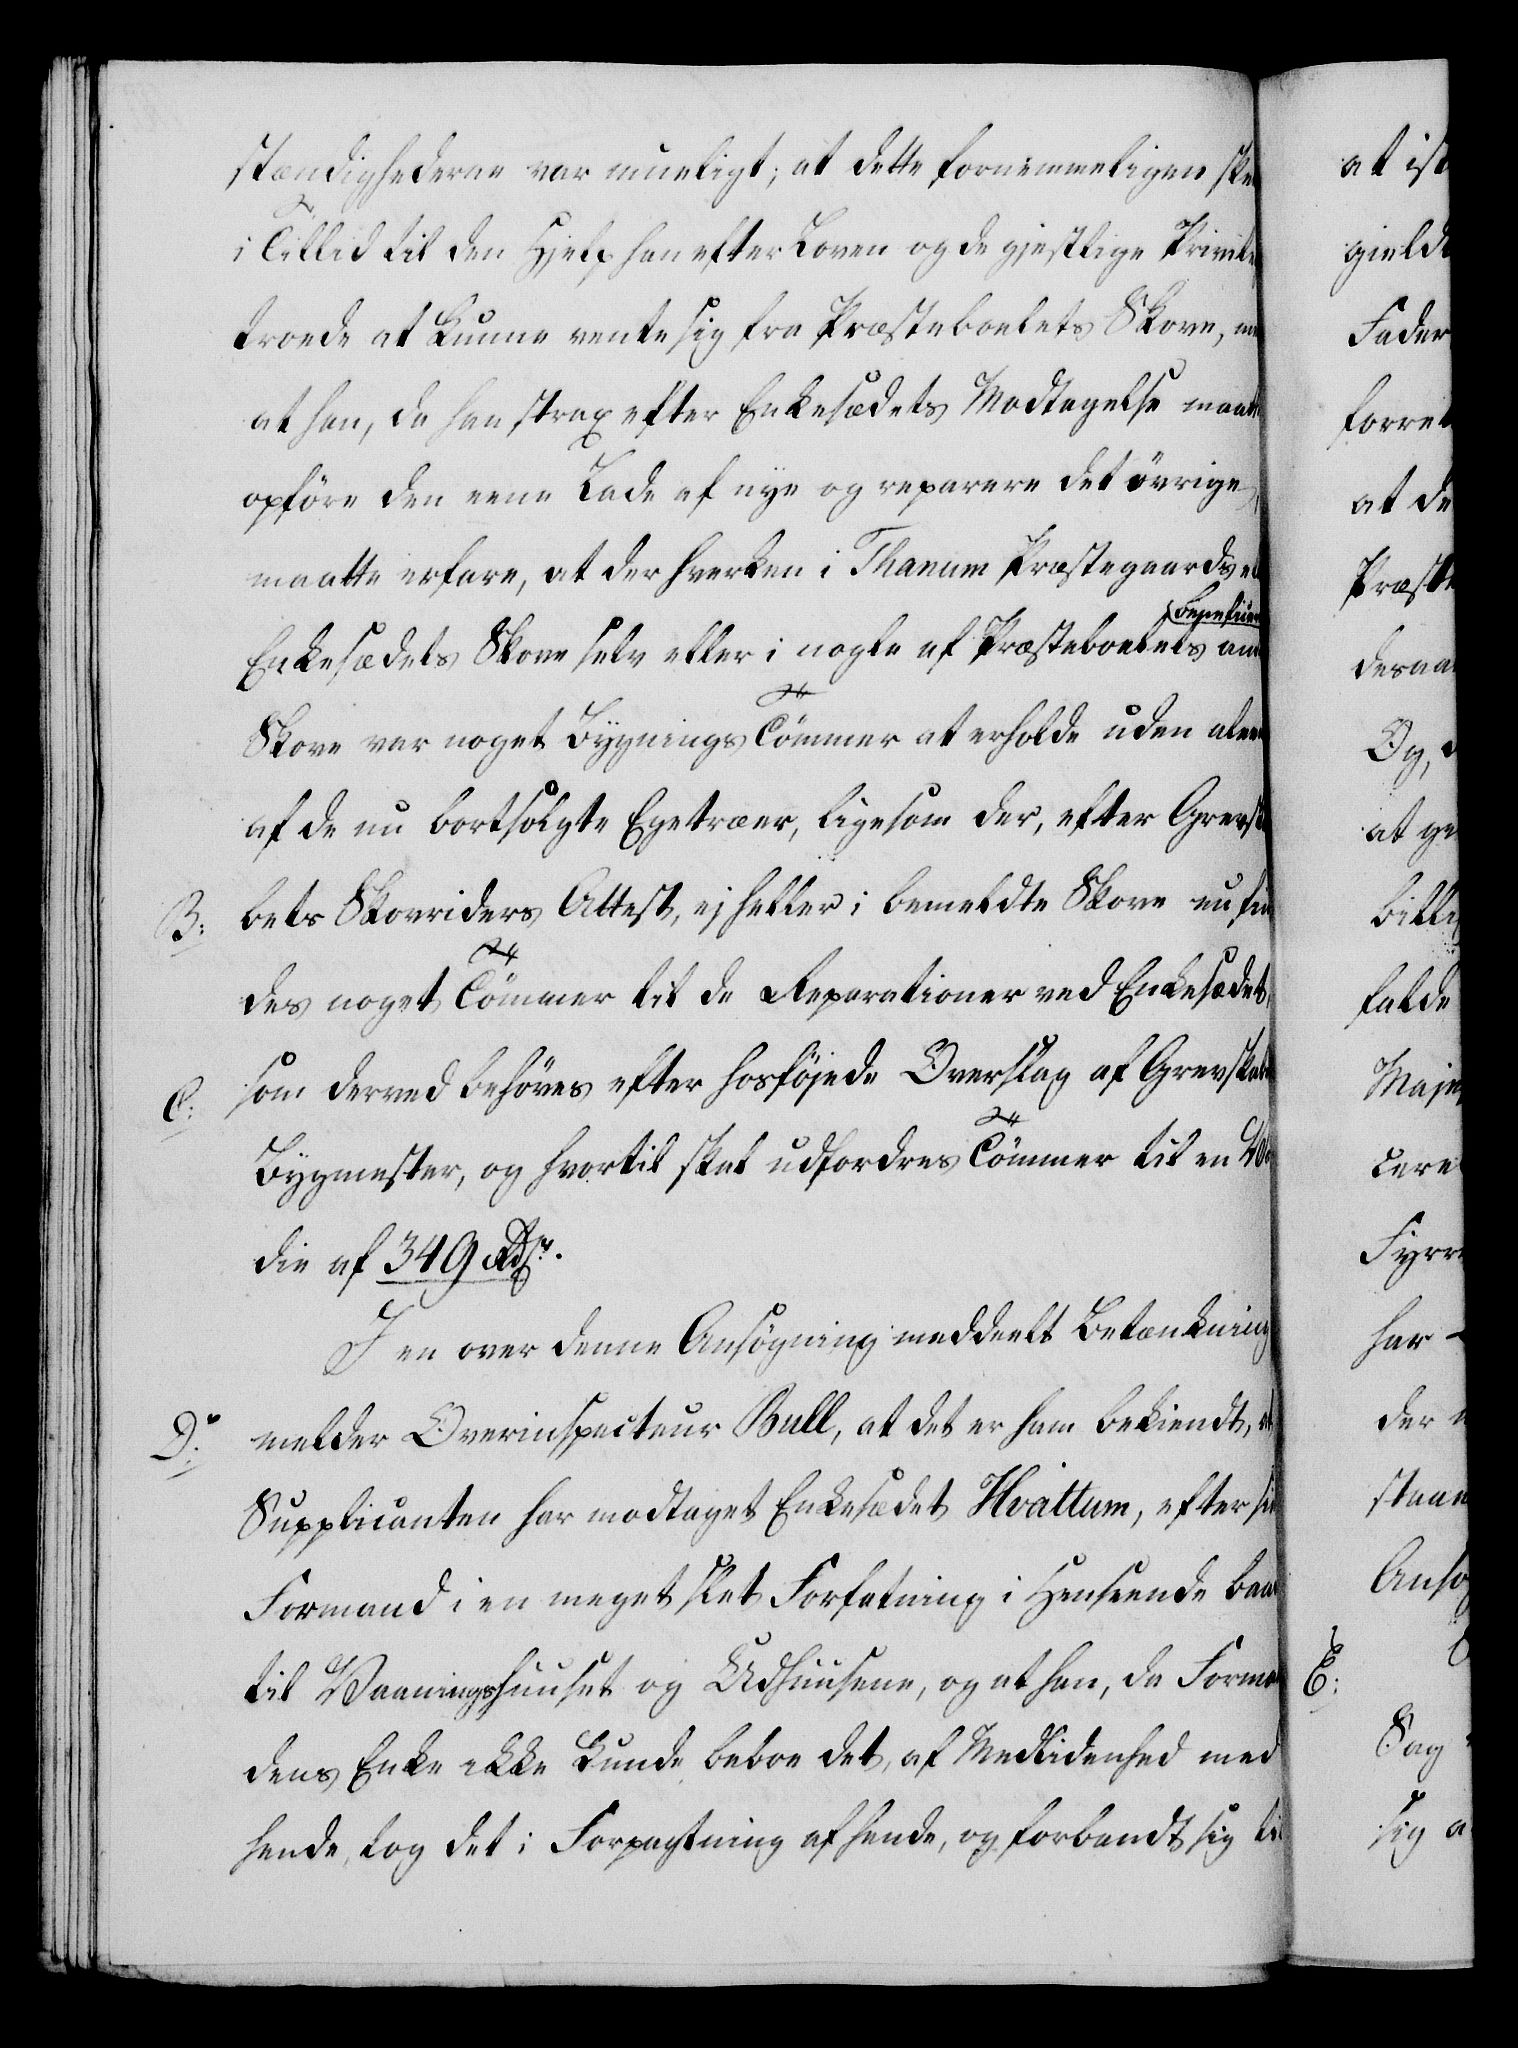 stændighederne var mueligt; at dette fornemmeligen skee
i Tillid til den Hjelp han efter Loven og de gejstlige Privile
troede at kunne vente sig fra Præsteboelets Skove, men
at han, da han strax efter Enkesædets Modtagelse maatte
opföre den eene Lade af nye og reparere det övrige,
maatte erfare, at der hverken i Thanum Præstegaards el
Beneficer
Enkesædets Skove selv eller i nogle af Præsteboelets and
Skove var noget Bygnings Tömmer at erholde uden alene
af de nu bortsolgte Egetræer, ligesom der, efter Grevska
B: bets Skovriders Attest, ej heller i bemeldte Skove nu fin
des noget Tömmer til de Reparationer ved Enkesædet,
C: som derved behöves efter hosföjede Overslag af Grevskabe
Bygmester, og hvortil skal udfordres Tömmer til en Vær
die af 349 Rdlr.
I en over denne Ansögning meddeelt Betænkning
D: melder Overinspecteur Bull, at det er ham bekiendt, at
Supplicanten har modtaget Enkesædet Hvattum, efter sin
Formand i en meget slet Forfatning i Henseende baade
til Vaaningshuuset og Udhuusene, og at han, da Forman
dens Enke ikke kunde beboe det, af Medlidenhed med
hende, tog det i Forpagtning af hende, og forbandt sig til
at ist
gield
Fader
forret
at de
Præst
desaa
Og,
at ge
billi
falde
Maje
cere
Fyrre
har
der
staae
Ansö
E:
Sag
sig a